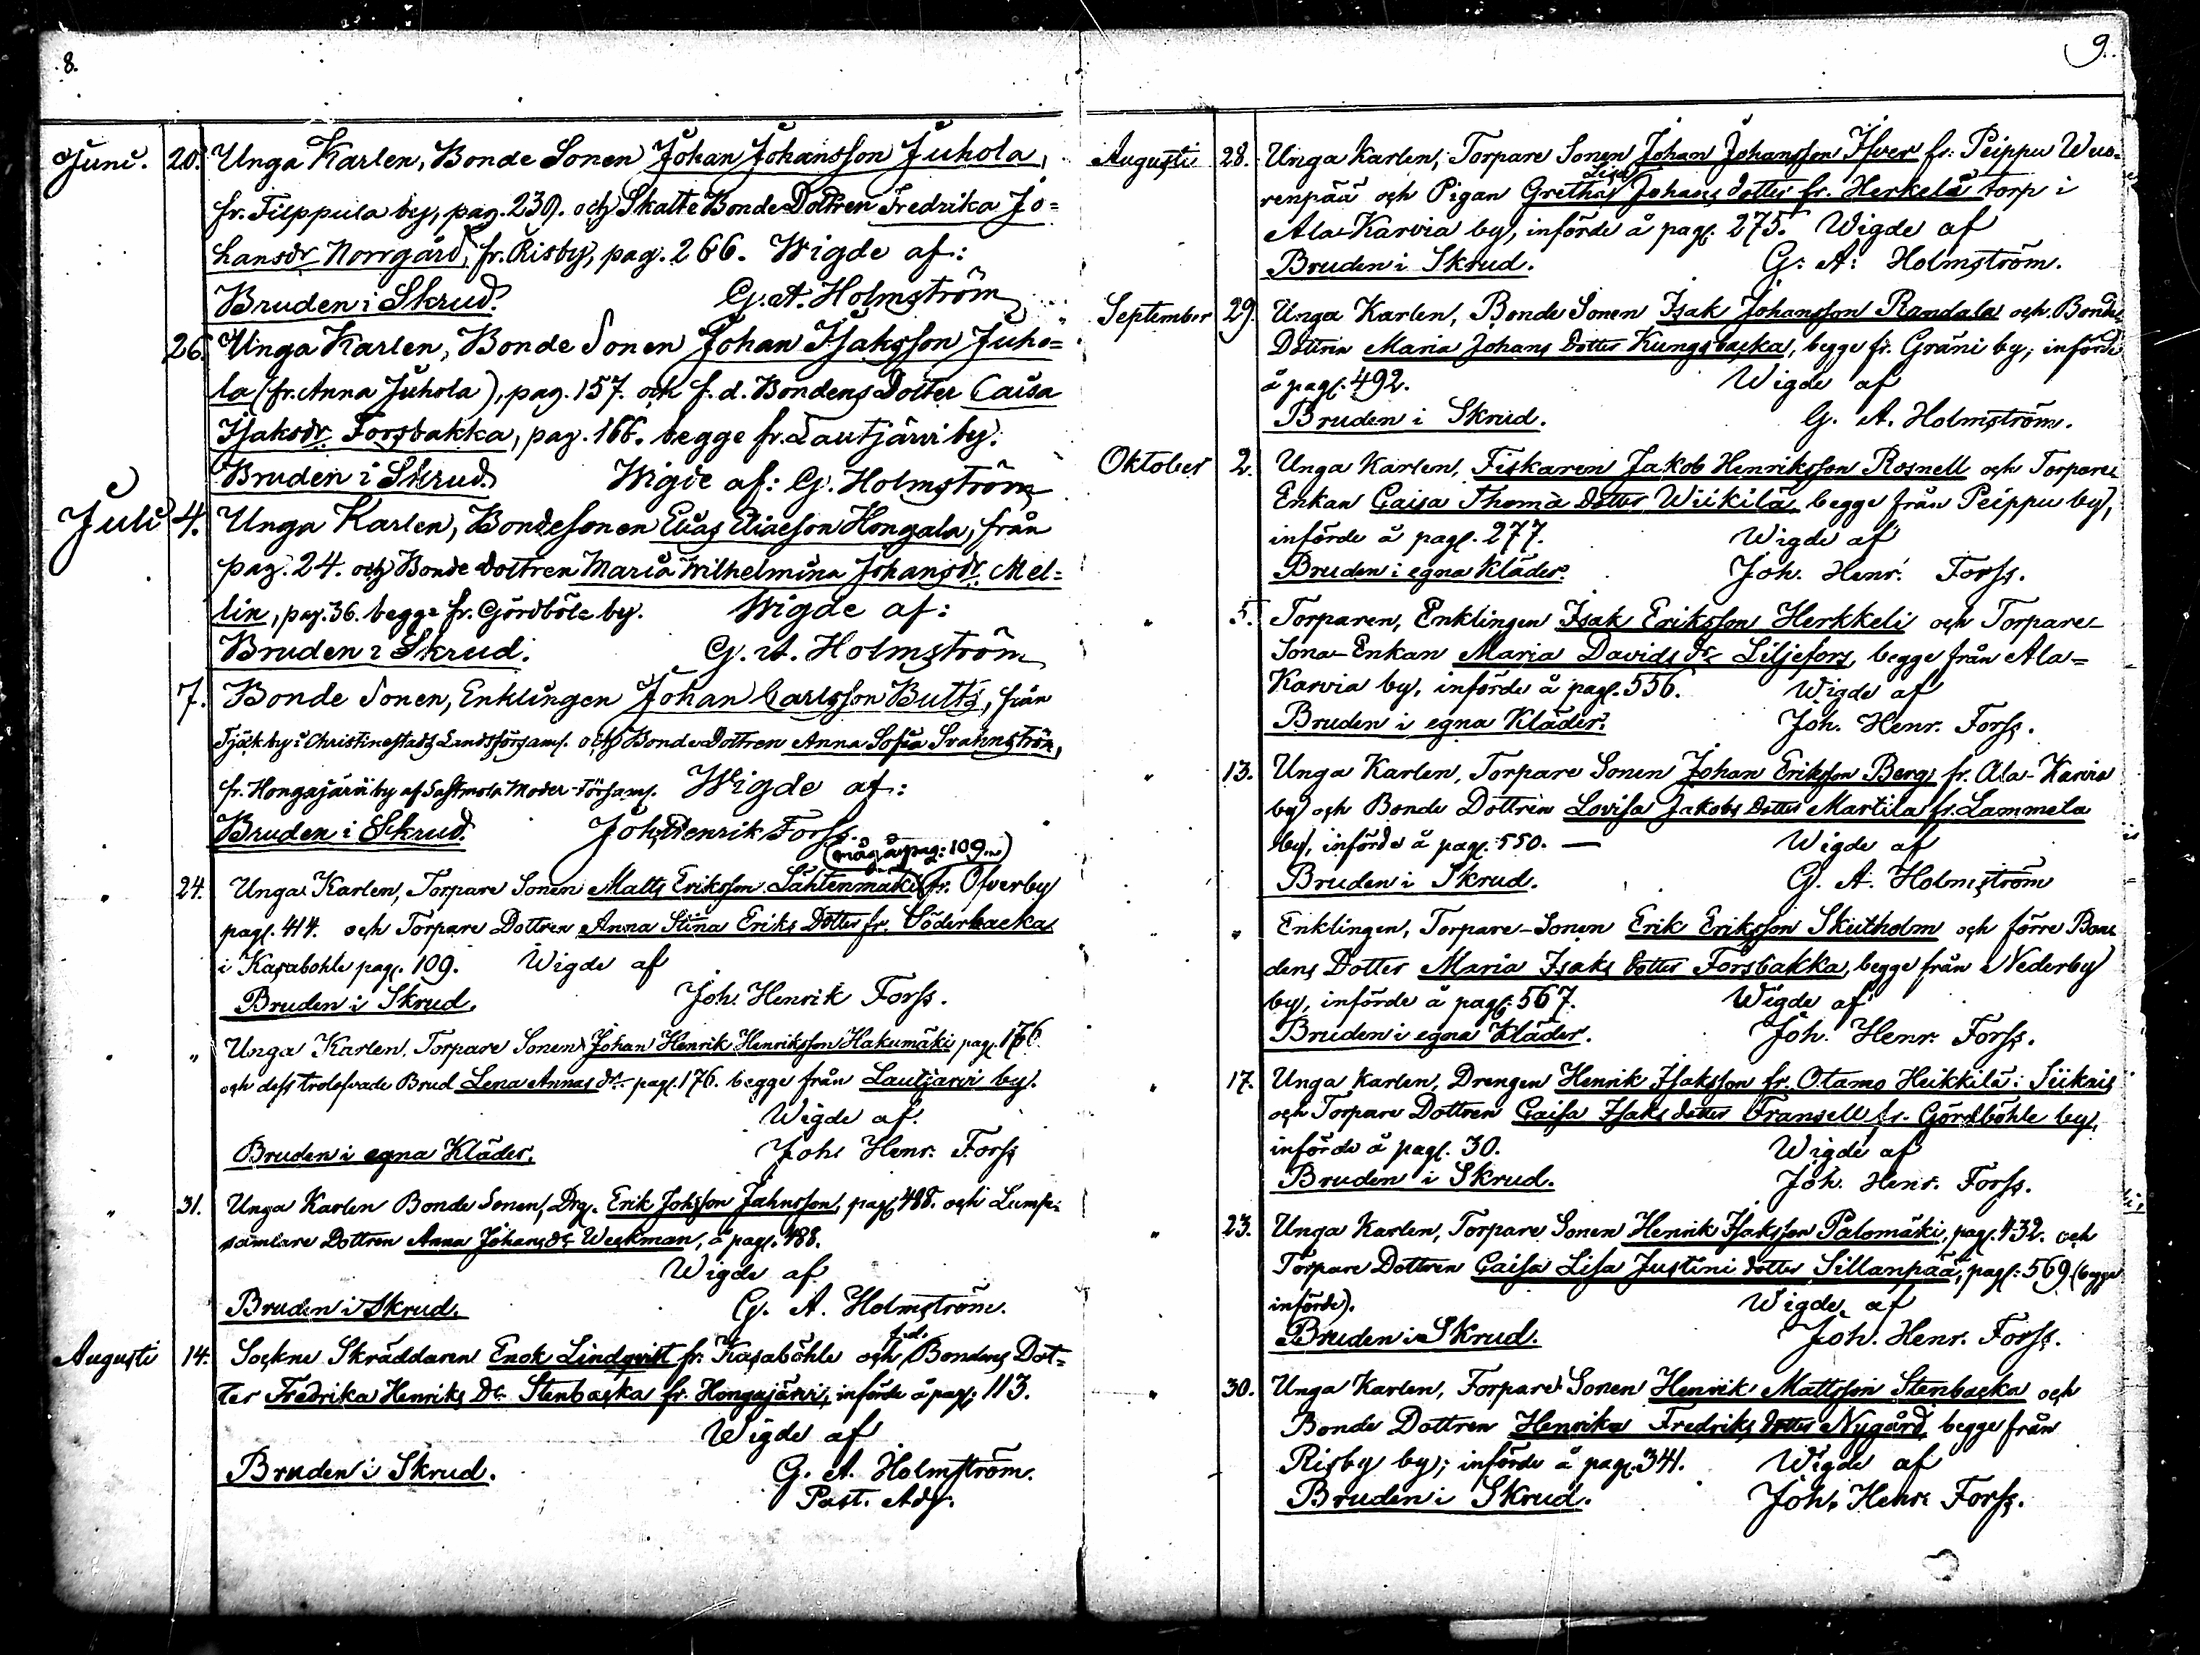 8.
Juni. 20. Unga Karlen, Bonde Sonen Johan Johansson Juhola,
fr. Filppula by, pag. 239. och Skatte Bonde Dottren Fredrika Jo=
hansdr Norrgård, fr. Risby, pag. 266. Wigde af:
Bruden i Skrud. G. A. Holmström
26. Unga Karlen, Bonde Sonen Johan Isaksson Juho=
la (fr. Anna Juhola), pag. 157. och f. d. Bondens Dotter Caisa
Isaksdr. Forsbakka, pag. 166. begge fr. Lautjärvi by.
Bruden i Skrud. Wigde af: G. Holmström
Juli 4. Unga Karlen, Bondesonen Elias Eliaeson Hongala, från
pag. 24. och Bonde Dottren Maria Wilhelmina Johansdr. Mel=
lin, pag. 36. begge fr. Gördböle by. Wigde af:
Bruden i Skrud. G. A. Holmström
7. Bonde Sonen, Enklingen Johan Carlsson Butts, från
Tjäkby i Christinestads Landsförsaml. och Bonde Dottren Anna Sofia Svahnström,
fr. Hongajärvi by af Sastmola Moder-Församl. Wigde af:
Bruden i Skrud. Joh. Henrik Forss.
(måg å pag: 109.)
24. Unga Karlen, Torpare Sonen Matts Eriksson Lähtenmäki fr. Öfverby
pag. 414. och Torpare Dottren Anna Stina Eriks Dotter fr. Söderbacka
i Kasabohle pag. 109. Wigde af
Bruden i Skrud. Joh. Henrik Forss.
" Unga Karlen, Torpare Sonen Johan Henrik Henriksson Hakumäki pag. 176.
och dess trolofvade Brud Lena Annas dr. pag. 176. begge från Lautjärvi by.
Wigde af.
Bruden i egna Kläder. Joh. Henr. Forss
" 31. Unga Karlen Bonde Sonen, Drg. Erik Johsson Jahnsson, pag. 488. och Lump-
samlare Dottren Anna Johans dr Weckman, å pag. 488.
Wigde af
Bruden i Skrud. G. A. Holmström.
Augusti 14. Sockne Skräddaren Enok Lindqvist fr. Kasaböhle och f.d. Bondens Dot=
ter Fredrika Henriks Dr. Stenbacka fr. Hongajärvi, införde å pag. 113.
Wigde af
Bruden i Skrud. G. A. Holmström.
Past. Adj.
9.
Augusti 28. Unga Karlen, Torpare Sonen Johan Johansson Ifver fr. Peippu Wuo-
renpää och Pigan Gretha Lisa Johans dotter fr. Herkelä torp i
Ala-Karvia by, införde å pag. 275. Wigde af
Bruden i Skrud. G. A. Holmström.
September 29. Unga Karlen, Bonde Sonen Isak Johansson Randala och Bonde
Dottren Maria Johans dotter Kungsbacka, begge fr. Gräni by, införde
å pag. 492. Wigde af
Bruden i Skrud. G. A. Holmström.
Oktober 2. Unga Karlen, Fiskaren Jakob Henriksson Rosnell och Torpare
Enkan Caisa Thomä dotter Wiikilä begge från Peippu by,
införde å pag. 277. Wigde af
Bruden i egna kläder. Joh. Henr. Forss.
" 5. Torparen, Enklingen Isak Eriksson Herkkeli och Torpare
Sona-Enkan Maria Davids dr Liljefors, begge från Ala=
Karvia by, införde å pag. 556. Wigde af
Bruden i egna Kläder. Joh. Henr. Forss.
" 13. Unga Karlen, Torpare Sonen Johan Eriksson Berg fr. Ala-Karvia
by och Bonde Dottren Lovisa Jakobs dotter Martila fr. Lammela
by, införde å pag. 550. — Wigde af
Bruden i Skrud. G. A. Holmström
" " Enklingen, Torpare-Sonen Erik Eriksson Skutholm och förre Bon-
dens Dotter Maria Isaks dotter Forsbakka, begge från Nederby
by, införde å pag. 567. Wigde af
Bruden i egna Kläder. Joh. Henr. Forss.
" 17. Unga Karlen, Drengen Henrik Isaksson fr. Otamo Heikkilä i Siikais
och Torpare Dottren Caisa Isaks dotter Fransell fr. Gördböhle by,
införde å pag. 30. Wigde af
Bruden i Skrud. Joh. Henr. Forss.
" 23. Unga Karlen, Torpare Sonen Henrik Isaksson Palomäki, pag. 432. och
Torpare Dottren Caisa Lisa Justini dotter Sillanpää, pag. 569. (begge
införde). Wigde af
Bruden i Skrud. Joh. Henr. Forss.
" 30. Unga Karlen, Torpare Sonen Henrik Mattsson Stenbacka och
Bonde Dottren Henrika Fredriks dotter Nygård begge från
Risby by; införde å pag. 341. Wigde af
Bruden i Skrud. Joh. Henr. Forss.